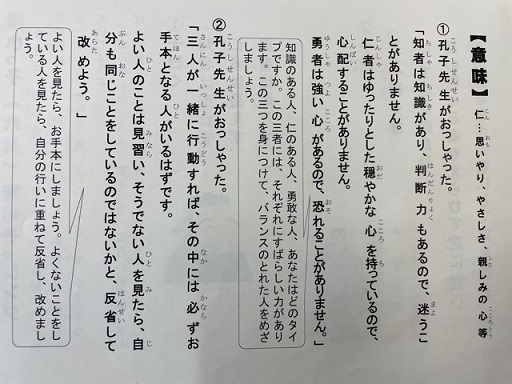 【意味】 仁…思いやり、やさしさ、親しみの心等
① 孔子先生がおっしゃった。
「知者は知識があり、判断力もあるので、迷うこ
とがありません。
仁者はゆったりとした穏やかな心を持っているので、
心配することがありません。
勇者は強い心があるので、恐れることがありません。」
知識のある人、仁のある人、勇敢な人、あなたはどのタイ
プですか。この三者には、それぞれにすばらしい力があり
ます。この三つを身につけて、バランスのとれた人をめざ
しましょう。
② 孔子先生がおっしゃった。
「三人が一緒に行動すれば、その中には必ずお
手本となる人がいるはずです。
よい人のことは見習い、そうでない人を見たら、自
分も同じことをしているのではないかと、反省して
改めよう。」
よい人を見たら、お手本にしましょう。よくないことをし
ている人を見たら、自分の行いに重ねて反省し、改めまし
ょう。